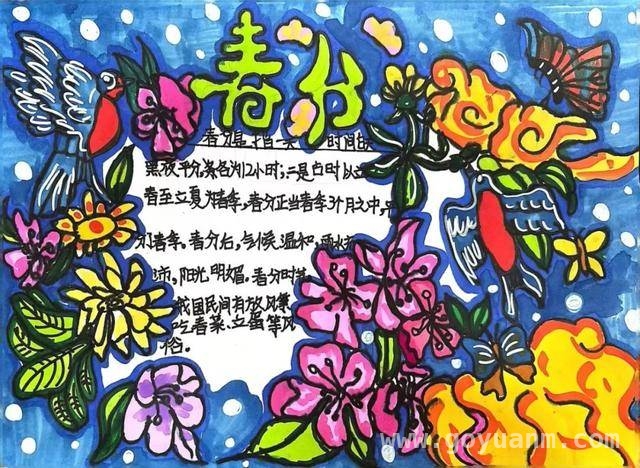 春分
春分是指 时间
黑夜平分各为12小时;二是古时以立
春至立夏为春季,春分正当春季3个月之中,
春季。春分后,气候温和,雨水
沛,阳光明媚。春分时
我国民间有放风筝
吃春菜、立蛋等风
俗。
www.goyuanm.com